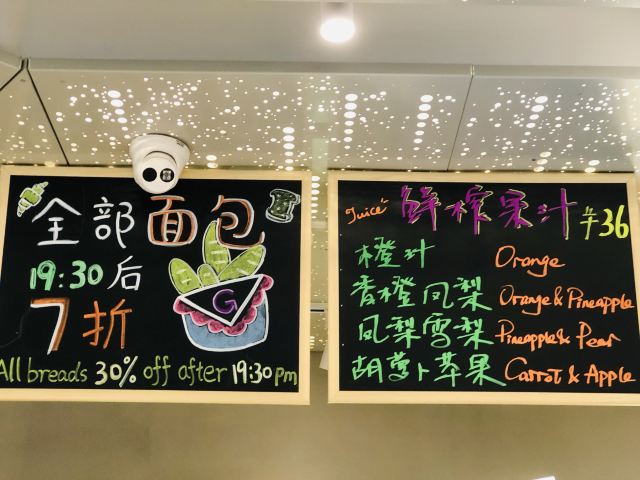 全部面包
19:30后
7折
G
All breads 30% off after 19:30 pm
Juice 鲜榨果汁 ¥36
橙汁 Orange
香橙凤梨 Orange & Pineapple
凤梨雪梨 Pineapple & Pear
胡萝卜苹果 Carrot & Apple